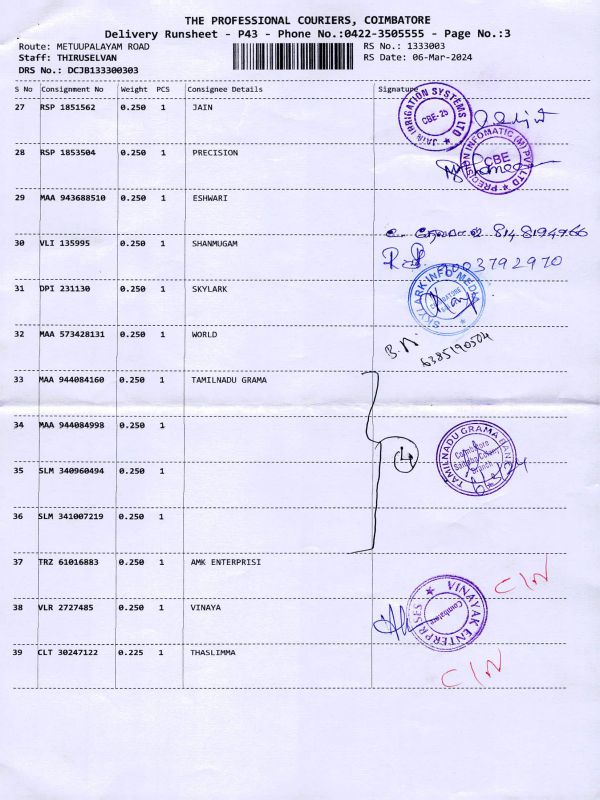 THE PROFESSIONAL COURIERS, COIMBATORE
Delivery Runsheet - P43 - Phone No.:0422-3505555 - Page No.:3
Route: METUUPALAYAM ROAD RS No.: 1333003
Staff: THIRUSELVAN RS Date: 06-Mar-2024
DRS No.: DCJB133300303
S No Consignment No Weight PCS Consignee Details Signature
27 RSP 1851562 0.250 1 JAIN
JAIN IRRIGATION SYSTEMS LTD
CBE-25
28 RSP 1853504 0.250 1 PRECISION
PRECISION INFOMATIC (M) PVT LTD
CBE
29 MAA 943688510 0.250 1 ESHWARI
8148194766
30 VLI 135995 0.250 1 SHANMUGAM
9003792970
31 DPI 231130 0.250 1 SKYLARK
SKYLARK INFO MEDIA
32 MAA 573428131 0.250 1 WORLD
B.N
6385190504
33 MAA 944084160 0.250 1 TAMILNADU GRAMA
34 MAA 944084998 0.250 1
4
TAMILNADU GRAMA BANK
Coimbatore
Branch
35 SLM 340960494 0.250 1
36 SLM 341007219 0.250 1
37 TRZ 61016883 0.250 1 AMK ENTERPRISI
C/N
38 VLR 2727485 0.250 1 VINAYA
VINAYAK ENTERPRISES
Coimbatore
39 CLT 30247122 0.225 1 THASLIMMA
C/N